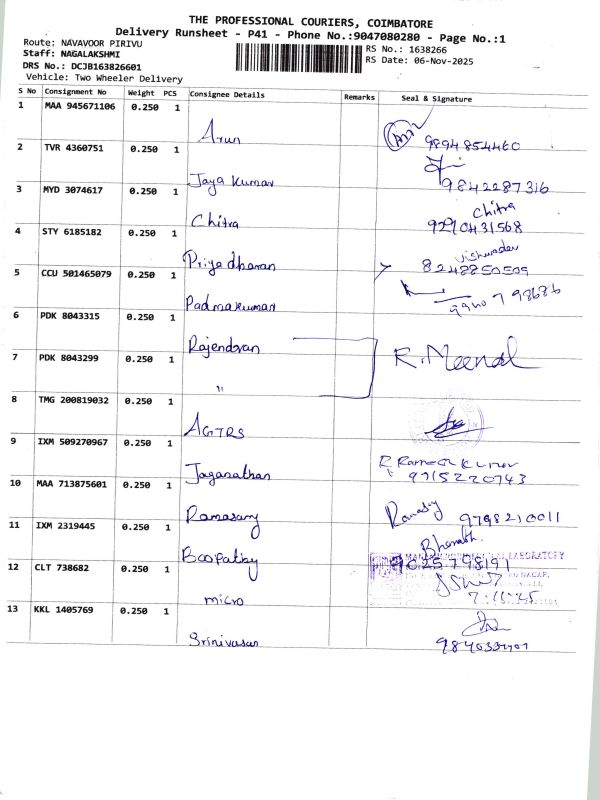 THE PROFESSIONAL COURIERS, COIMBATORE
Delivery Runsheet - P41 - Phone No.:9047080280 - Page No.:1
Route: NAVAVOOR PIRIVU
RS No.: 1638266
Staff: NAGALAKSHMI
RS Date: 06-Nov-2025
DRS No.: DCJB163826601
Vehicle: Two Wheeler Delivery
S No Consignment No Weight PCS Consignee Details Remarks Seal & Signature
1 MAA 945671106 0.250 1
Arun 9894854460
2 TVR 4360751 0.250 1
Jaya Kumar 9842287316
3 MYD 3074617 0.250 1
Chitra
Chitra 9290431568
4 STY 6185182 0.250 1
Vishwadev
Priyadharan 8248850509
5 CCU 501465079 0.250 1
Padmakumar
6 PDK 8043315 0.250 1
Rajendran
7 PDK 8043299 0.250 1
" R. Meenal
8 TMG 200819032 0.250 1
AGTRS
9 IXM 509270967 0.250 1
Jaganathan 9715220743
10 MAA 713875601 0.250 1
Ramasamy Ramasamy 9798210011
11 IXM 2319445 0.250 1
Bharath
Boopathy 9025798191
LABORATORY
12 CLT 738682 0.250 1
NAGAR,
micro
13 KKL 1405769 0.250 1
Srinivasan